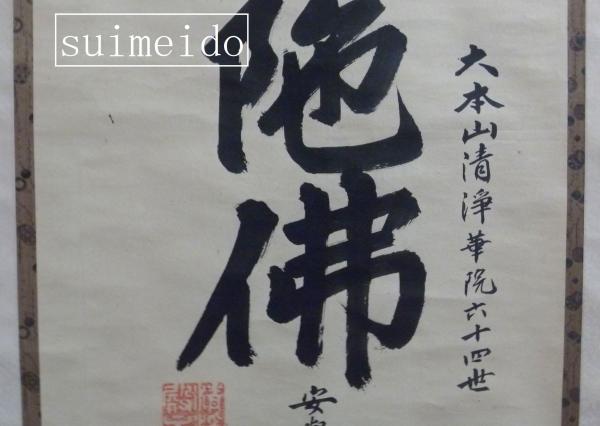 suimeido
大本山清浄華院六十四世
陀佛
安